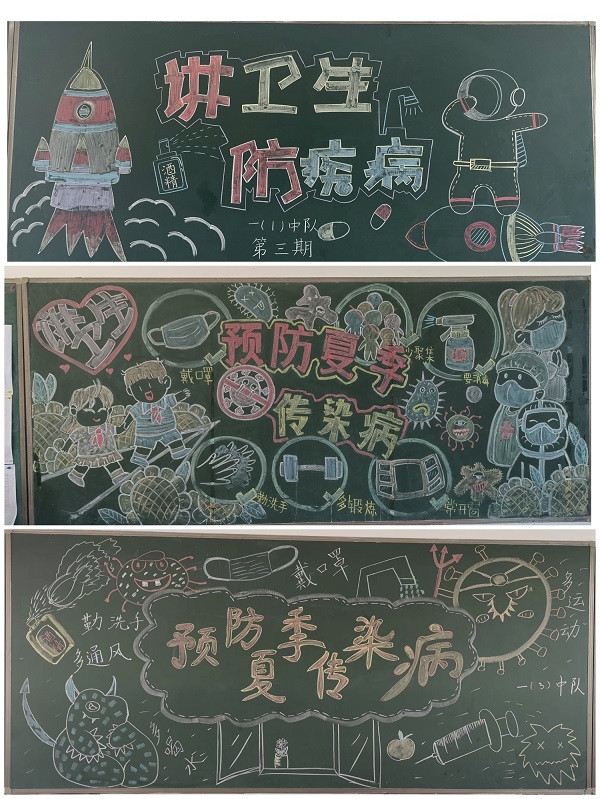 讲卫生
防疾病
酒精
一(1)中队
第三期
讲卫生
预防夏季
传染病
戴口罩
少聚集
要消毒
勤洗手
多锻炼
常开窗
戴口罩
勤洗手
多通风
预防夏季传染病
多运动
一(3)中队
多喝水